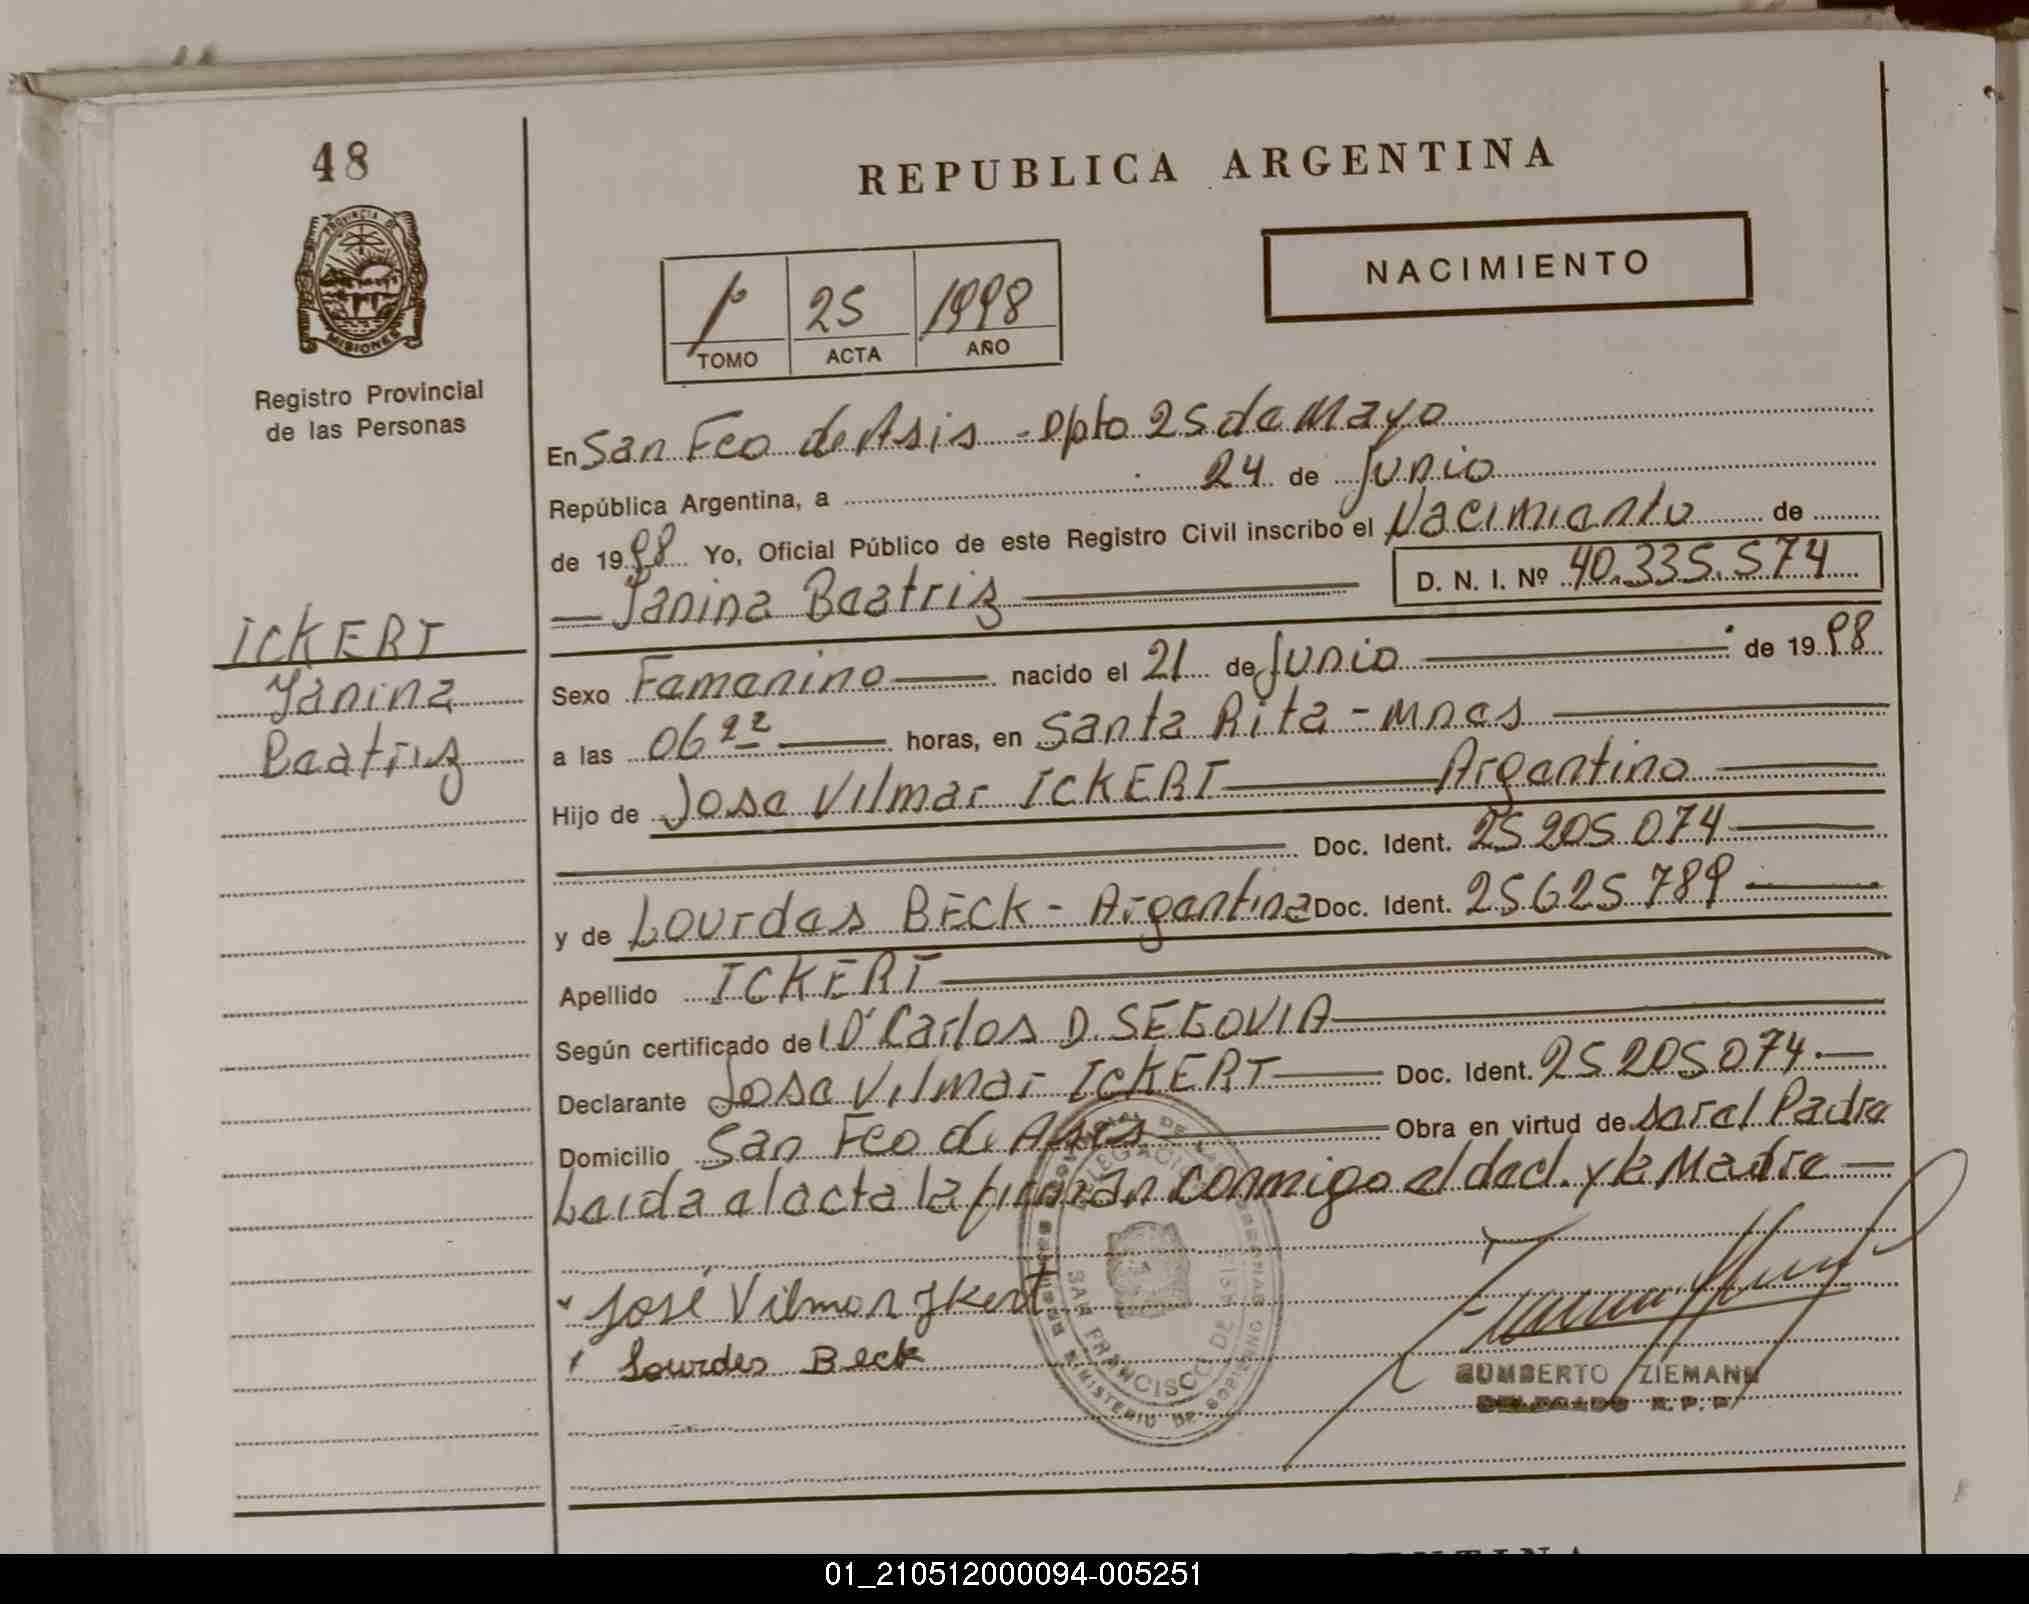 48
REPUBLICA ARGENTINA
PROVINCIA DE
MISIONES
Registro Provincial
de las Personas
1º 25 1998
TOMO ACTA AÑO
NACIMIENTO
En San Fco de Asis - Dpto 25 de Mayo
República Argentina, a 24 de Junio
de 1998 Yo, Oficial Público de este Registro Civil inscribo el Nacimiento de
Yanina Beatriz D. N. I. Nº 40.335.574
ICKERT
Yanina
Beatriz
Sexo Femenino nacido el 21 de Junio de 1998
a las 06 22 horas, en Santa Rita - Mnes
Hijo de Jose Vilmar ICKERT Argentino
Doc. Ident. 25 205 074
y de Lourdes BECK - Argentina Doc. Ident. 25 625 789
Apellido ICKERT
Según certificado de Carlos D. SEGOVIA
Declarante Jose Vilmar ICKERT Doc. Ident. 25 205 074
Domicilio San Fco de Asis Obra en virtud de ser el Padre
Leida el acta la firman conmigo el decl. y la Madre
José Vilmar Ikert
Lourdes Beck
SAN FRANCISCO DE ASIS
MINISTERIO DE GOBIERNO
HUMBERTO ZIEMANN
DELEGADO R.P.P.
01_210512000094-005251